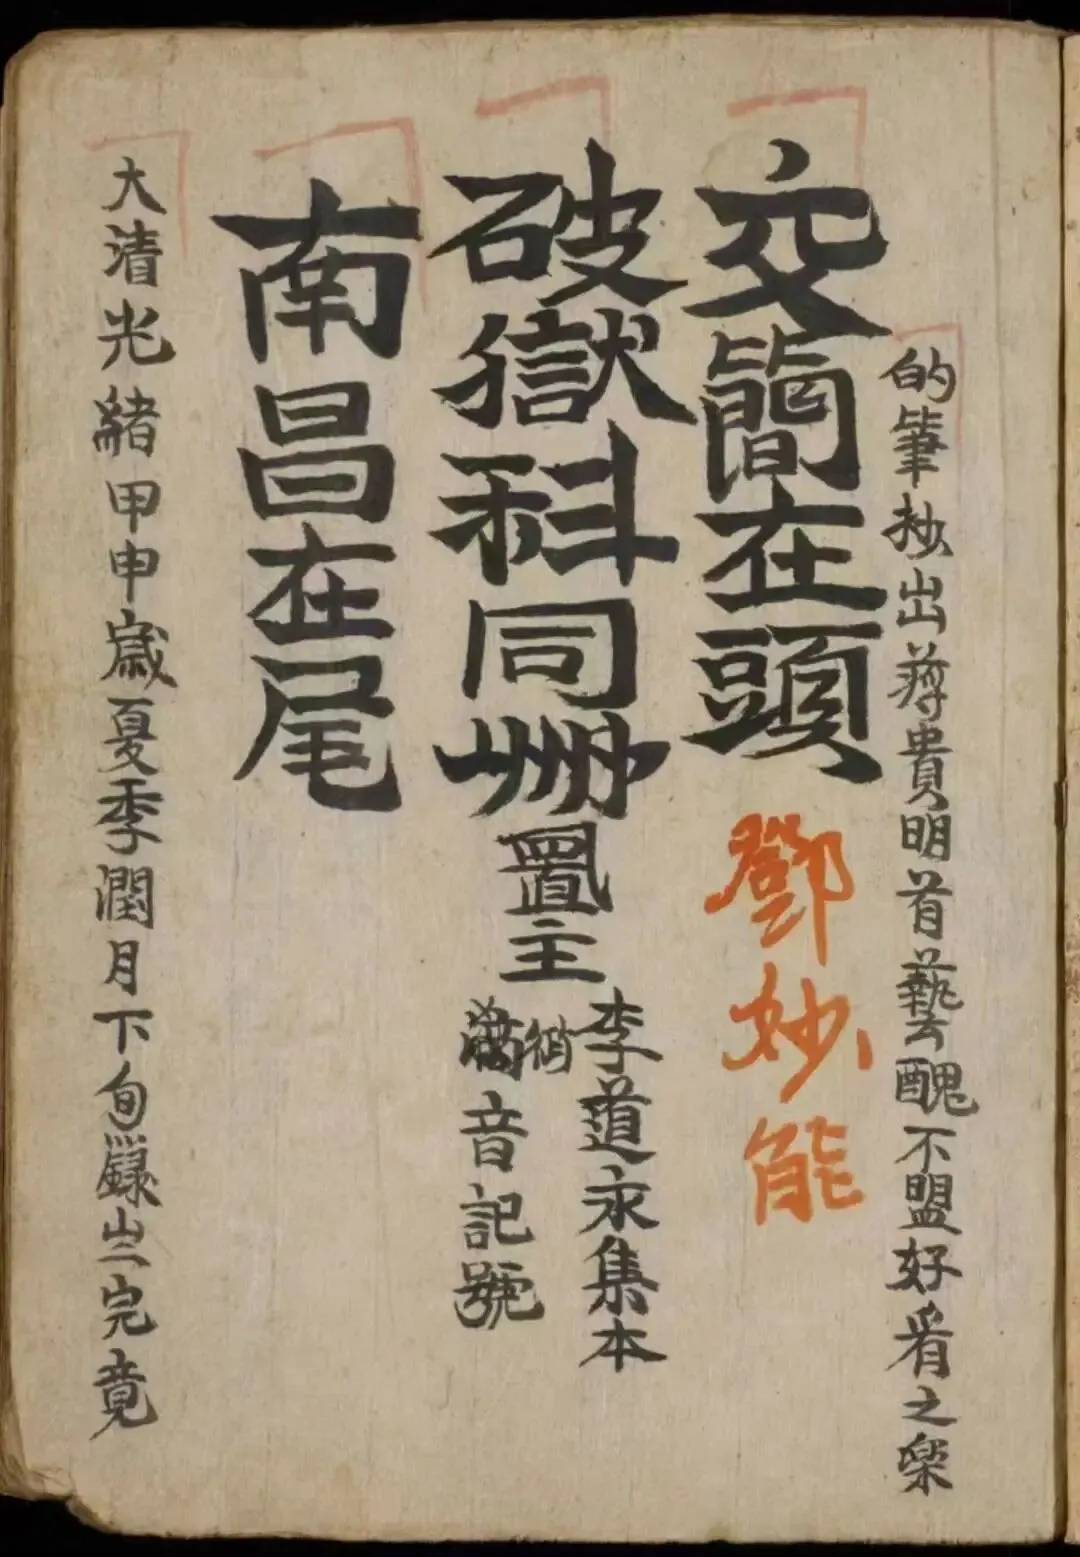 的筆抄出蓴貴明首藝醜不盟好看之樂
交簡在頭
鄧妙能
破獄科同卌
置主
李道永集本
音記號
南昌在尾
大清光緒甲申歲夏季潤月下旬錄完竟